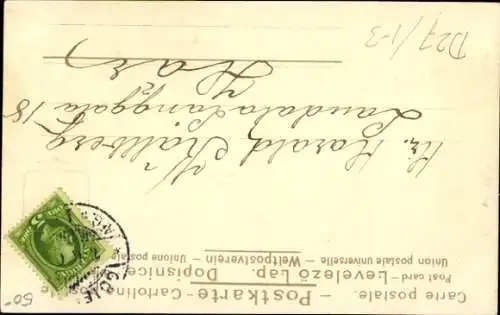 Carte postale. – Postkarte – Cartolina
Post card – Levelező Lap. Dopisnice
Union postale universelle – Weltpostverein – Unione postale
Hr. Harald Källberg
Landala Långgata 18
Här
D27/1-3
50-